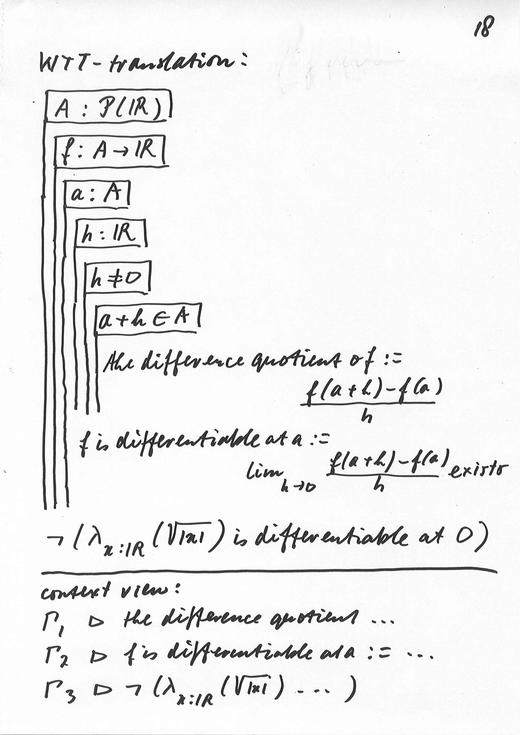 18
WTT-translation:
A : P(IR)
f : A → IR
a : A
h : IR
h ≠ 0
a+h ∈ A
the difference quotient of f :=
f(a+h)-f(a)
h
f is differentiable at a :=
lim h→0 f(a+h)-f(a) exists
h
¬ (λx:IR (√|x|) is differentiable at 0)
context view:
Γ1 ▷ the difference quotient ...
Γ2 ▷ f is differentiable at a := ...
Γ3 ▷ ¬ (λx:IR (√|x|) ... )